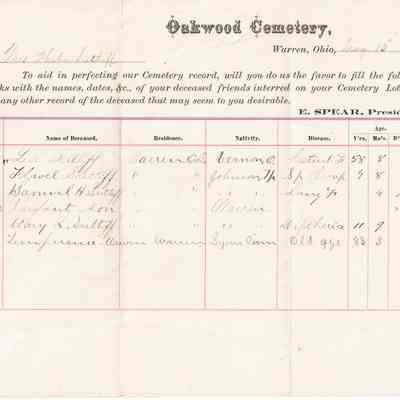 Oakwood Cemetery,
Warren, Ohio, 15
Mrs Phebe Sutliff
To aid in perfecting our Cemetery record, will you do us the favor to fill the fol
ks with the names, dates, &c., of your deceased friends interred on your Cemetery Lot
any other record of the deceased that may seem to you desirable.
E. SPEAR, Presid
Name of Deceased. Residence. Nativity. Disease. Age. Y'rs. Mo's.
Sutliff Warren O Vernon O. 58 8
Flavel Sutliff " " Johnson Sp Croup 9 8
Samuel H Sutliff " " " " Lung F 4 8
Infant Son " " Warren
Mary L. Sutliff " " " " Diptheria 11 9
Temperance Warren Lyme Conn Old age 83 3